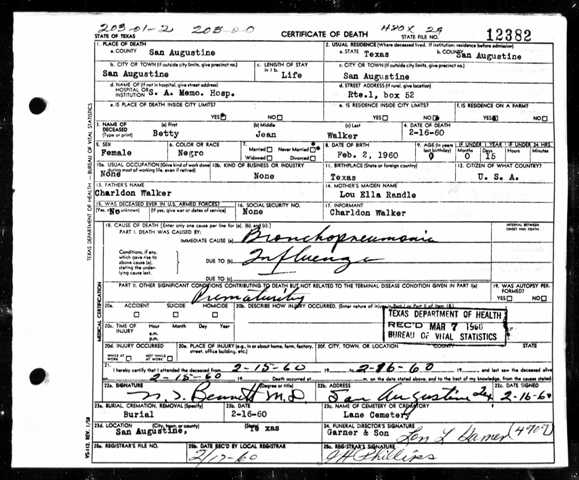 203-01-2 203-0-0 480X 29
STATE OF TEXAS CERTIFICATE OF DEATH STATE FILE NO. 12382
1. PLACE OF DEATH 2. USUAL RESIDENCE (Where deceased lived. If institution: residence before admission)
a. COUNTY San Augustine a. STATE Texas b. COUNTY San Augustine
b. CITY OR TOWN (If outside city limits, give precinct no.) c. LENGTH OF STAY in 1 b. c. CITY OR TOWN (If outside city limits, give precinct no.)
San Augustine Life San Augustine
d. NAME OF (If not in hospital, give street address) d. STREET ADDRESS (If rural, give location)
HOSPITAL OR INSTITUTION S. A. Memo. Hosp. Rte.1, box 52
e. IS PLACE OF DEATH INSIDE CITY LIMITS? e. IS RESIDENCE INSIDE CITY LIMITS? f. IS RESIDENCE ON A FARM?
YES NO YES NO YES NO
3. NAME OF DECEASED (Type or print) (a) First (b) Middle (c) Last 4. DATE OF DEATH
Betty Jean Walker 2-16-60
5. SEX 6. COLOR OR RACE 7. Married Never Married Widowed Divorced 8. DATE OF BIRTH 9. AGE (In years last birthday) IF UNDER 1 YEAR IF UNDER 24 HRS.
Months Days Hours Minutes
Female Negro Feb. 2, 1960 0 0 15
10a. USUAL OCCUPATION (Give kind of work done during most of working life, even if retired) 10b. KIND OF BUSINESS OR INDUSTRY 11. BIRTHPLACE (State or foreign country) 12. CITIZEN OF WHAT COUNTRY?
None None Texas U. S. A.
13. FATHER'S NAME 14. MOTHER'S MAIDEN NAME
Charldon Walker Lou Ella Randle
15. WAS DECEASED EVER IN U.S. ARMED FORCES? 16. SOCIAL SECURITY NO. 17. INFORMANT
(If yes, give war or dates of service)
No None Charldon Walker
18. CAUSE OF DEATH (Enter only one cause per line for (a), (b), and (c).) INTERVAL BETWEEN ONSET AND DEATH
PART I. DEATH WAS CAUSED BY:
IMMEDIATE CAUSE (a) Bronchopneumonia
Conditions, if any, which gave rise to above cause (a), stating the underlying cause last.
DUE TO (b) Influenza
DUE TO (c)
PART II. OTHER SIGNIFICANT CONDITIONS CONTRIBUTING TO DEATH BUT NOT RELATED TO THE TERMINAL DISEASE CONDITION GIVEN IN PART I (a) 19. WAS AUTOPSY PERFORMED?
Prematurity YES NO
20a. ACCIDENT SUICIDE HOMICIDE 20b. DESCRIBE HOW INJURY OCCURRED. (Enter nature of injury in Part I or Part II of item 18.)
TEXAS DEPARTMENT OF HEALTH
REC'D MAR 7 1960
BUREAU OF VITAL STATISTICS
20c. TIME OF INJURY Hour Month Day Year
a.m.
p.m.
20d. INJURY OCCURRED 20e. PLACE OF INJURY (e.g., in or about home, farm, factory, street, office building, etc.) 20f. CITY, TOWN, OR LOCATION COUNTY STATE
WHILE AT WORK NOT WHILE AT WORK
21. I hereby certify that I attended the deceased from 2-15-60 2-16-60 and last saw the deceased alive
2-15-60 Death occurred at m. on the date stated above, and to the best of my knowledge, from the causes stated.
22a. SIGNATURE 22b. ADDRESS 22c. DATE SIGNED
Bennett M.D San Augustine 2-16-60
23a. BURIAL, CREMATION, REMOVAL (Specify) 23b. DATE 23c. NAME OF CEMETERY OR CREMATORY
Burial 2-16-60 Lane Cemetery
23d. LOCATION (City, town, or county) (State) 24. FUNERAL DIRECTOR'S SIGNATURE
San Augustine, Texas Garner & Son (4702)
25a. REGISTRAR'S FILE NO. 25b. DATE REC'D BY LOCAL REGISTRAR 25c. REGISTRAR'S SIGNATURE
2/17-60 Phillips
TEXAS DEPARTMENT OF HEALTH — BUREAU OF VITAL STATISTICS
MEDICAL CERTIFICATION
VS-112, REV. 1/58